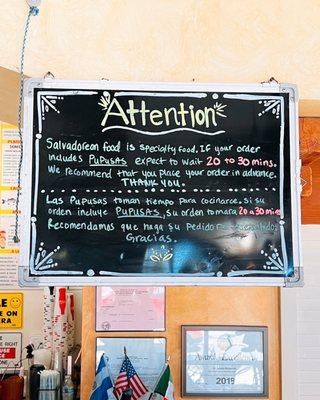 Attention
Salvadorean food is specialty food, If your order
includes PUPUSAS expect to wait 20 to 30 mins.
We recommend that you place your order in advance.
THANK YOU.
Las Pupusas toman tiempo para cocinarse. si su
orden incluye PUPUSAS, su orden tomara 20 a 30 mins
Recomendamos que haga su Pedido
Gracias.
2019